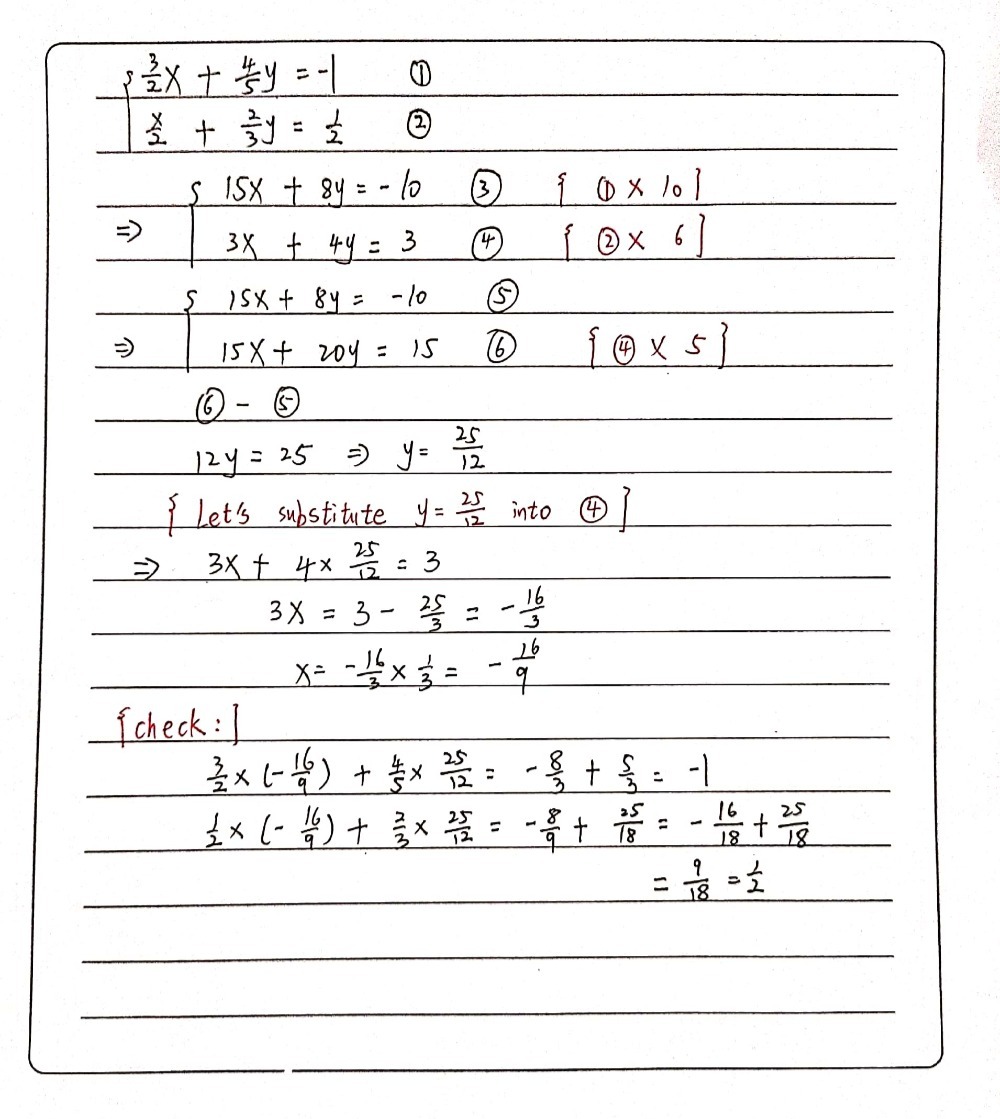 { 3/2 x + 4/5 y = -1 ①
x/2 + 2/3 y = 1/2 ②
{ 15x + 8y = -10 ③ { ① × 10 ]
⇒ 3x + 4y = 3 ④ { ② × 6 ]
{ 15x + 8y = -10 ⑤
⇒ 15x + 20y = 15 ⑥ { ④ × 5 ]
⑥ - ⑤
12y = 25 ⇒ y = 25/12
{ Let's substitute y = 25/12 into ④ ]
⇒ 3x + 4 × 25/12 = 3
3x = 3 - 25/3 = -16/3
x = -16/3 × 1/3 = -16/9
{ check : ]
3/2 × (-16/9) + 4/5 × 25/12 = -8/3 + 5/3 = -1
1/2 × (-16/9) + 2/3 × 25/12 = -8/9 + 25/18 = -16/18 + 25/18
= 9/18 = 1/2